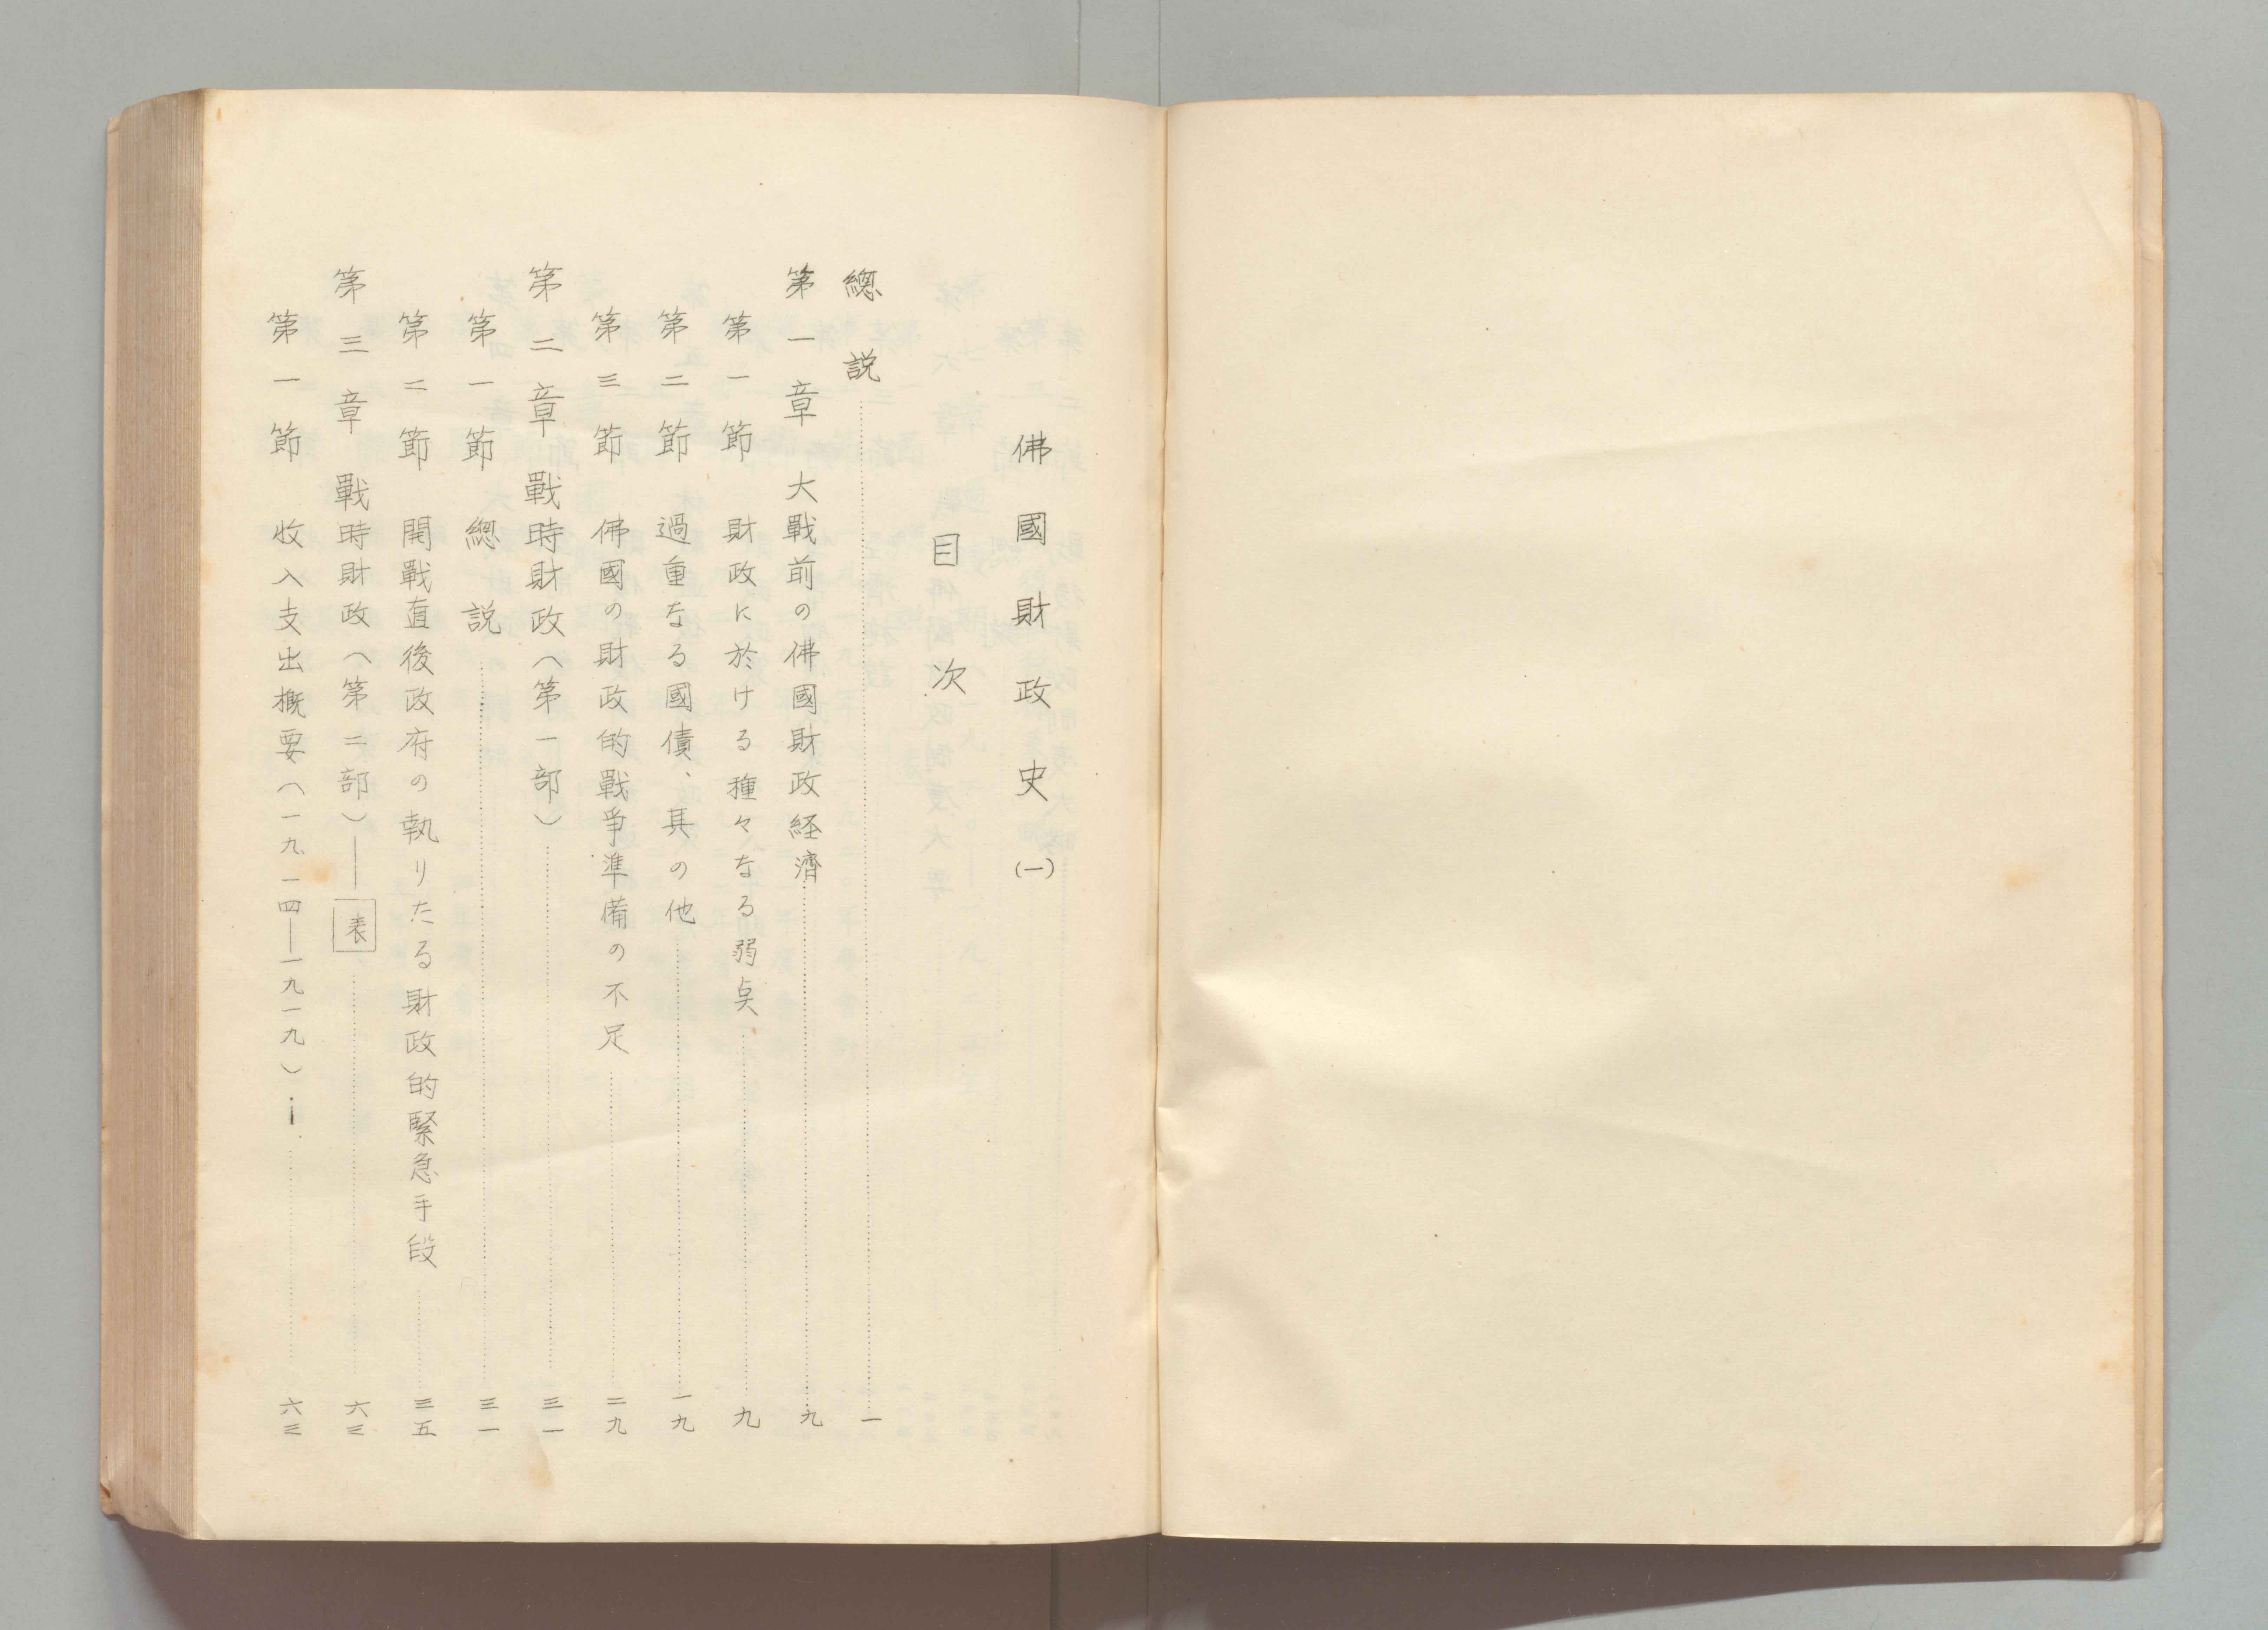 佛國財政史(一)
目次
總說……一
第一章 大戰前の佛國財政経濟……九
第一節 財政に於ける種々なる弱奌……九
第二節 過重なる國債、其の他……一九
第三節 佛國の財政的戰爭準備の不足……二九
第二章 戰時財政(第一部)……三一
第一節 總說……三一
第二節 開戰直後政府の執りたる財政的緊急手段……三五
第三章 戰時財政(第二部)―表……六三
第一節 收入支出概要(一九一四―一九一九)i……六三